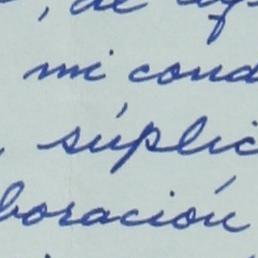 , de
mi cond
, súplic
boración